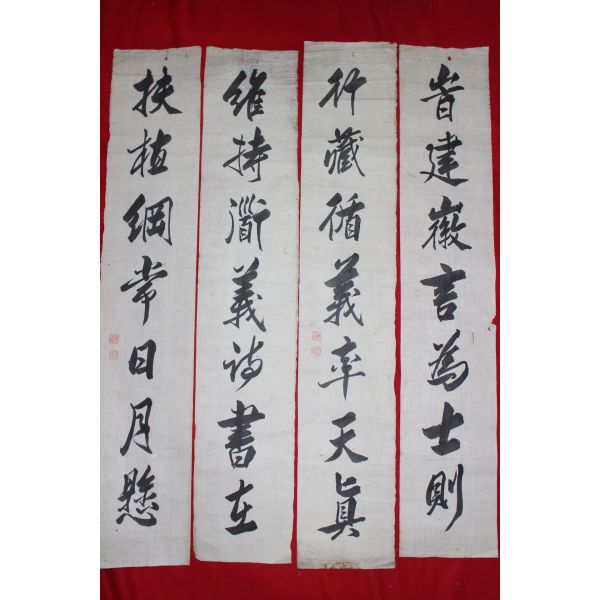 旹建徽言為士則
行藏循義率天眞
維持衟義詩書在
扶植綱常日月懸